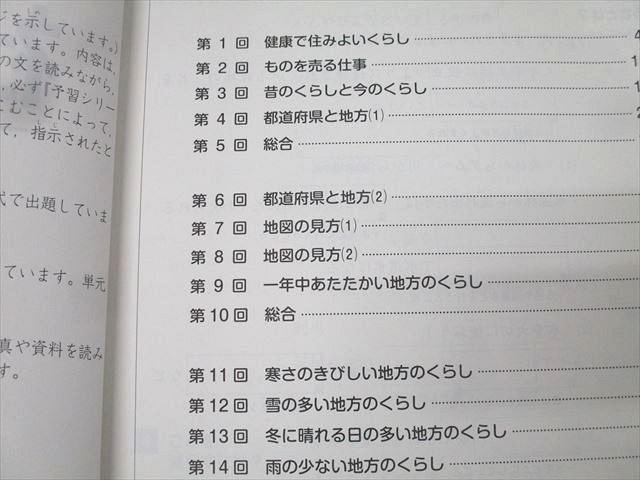 ジを示しています。)
ています。内容は,
の文を読みながら,
,必ず『予習シリー
よむことによって,
て,指示されたと
代で出題していま
ています。単元
真や資料を読み
す。
第 1 回 健康で住みよいくらし 4
第 2 回 ものを売る仕事 1
第 3 回 昔のくらしと今のくらし 1
第 4 回 都道府県と地方(1) 2
第 5 回 総合
第 6 回 都道府県と地方(2)
第 7 回 地図の見方(1)
第 8 回 地図の見方(2)
第 9 回 一年中あたたかい地方のくらし
第 10 回 総合
第 11 回 寒さのきびしい地方のくらし
第 12 回 雪の多い地方のくらし
第 13 回 冬に晴れる日の多い地方のくらし
第 14 回 雨の少ない地方のくらし